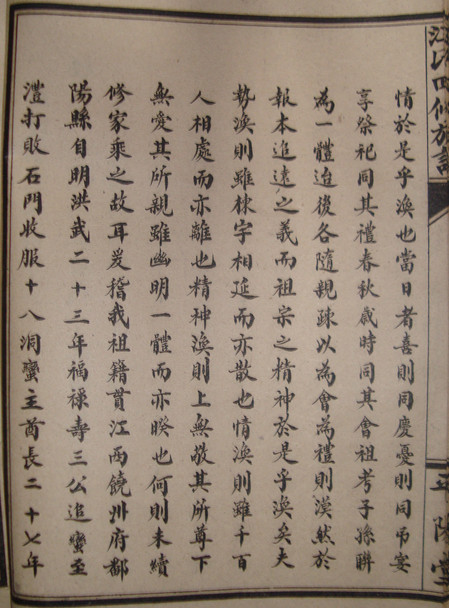 四修族
陽堂
情於是乎渙也當日者喜則同慶憂則同弔宴
享祭祀同其禮春秋歲時同其會祖考子孫聯
為一體迨後各隨親疎以為會為禮則漠然於
報本追遠之義而祖宗之精神於是乎渙矣夫
勢渙則雖棟宇相延而亦散也情渙則雖千百
人相處而亦離也精神渙則上無敬其所尊下
無愛其所親雖幽明一體而亦暌也何則未續
修家乘之故耳爰稽我祖籍貫江西饒州府鄱
陽縣自明洪武二十三年福祿壽三公追蠻至
澧打敗石門收服十八洞蠻主酋長二十七年